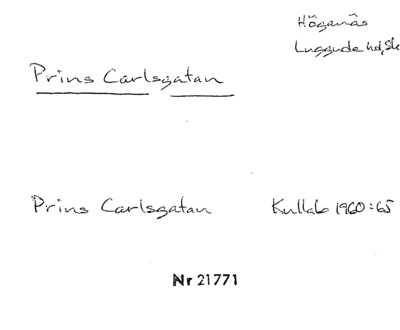 Höganäs
Luggude hd, Sk
Prins Carlsgatan
Prins Carlsgatan Kullab 1960:65
Nr 21771